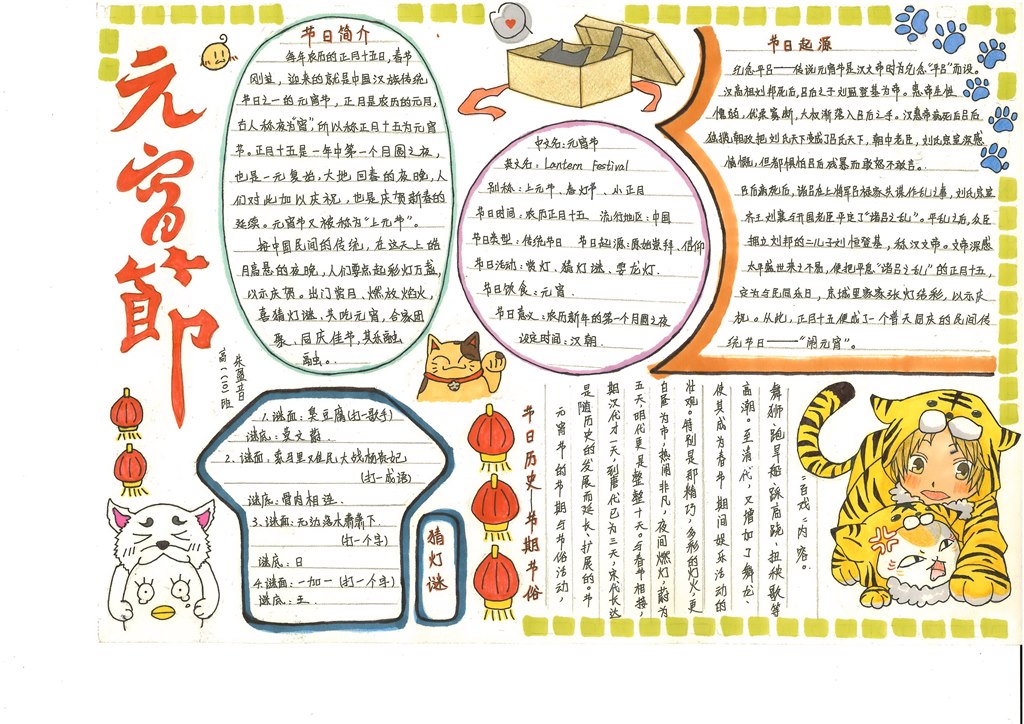 元宵節
高一(二)班
朱盈苔
节日简介
每年农历的正月十五日,春节
刚过,迎来的就是中国汉族传统
节日之一的元宵节,正月是农历的元月,
古人称夜为“宵”所以称正月十五为元宵
节。正月十五是一年中第一个月圆之夜,
也是一元复始,大地回春的夜晚,人
们对此加以庆祝,也是庆贺新春的
延续。元宵节又被称为“上元节”。
按中国民间的传统,在这天上皓
月高悬的夜晚,人们要点起彩灯万盏,
以示庆贺。出门赏月、燃放焰火,
喜猜灯谜、共吃元宵,合家团
聚、同庆佳节,其乐融融。
融融。
中文名:元宵节
英文名:Lantern Festival
别称:上元节、春灯节、小正月
节日时间:农历正月十五 流行地区:中国
节日类型:传统节日 节日起源:原始崇拜、信仰
节日活动:赏灯、猜灯谜、耍龙灯.
节日饮食:元宵.
节日意义:农历新年的第一个月圆之夜
设定时间:汉朝.
节日起源
纪念平吕——传说元宵节是汉文帝时为纪念“平吕”而设。
汉高祖刘邦死后,吕后之子刘盈登基为帝。惠帝生性
懦弱,优柔寡断,大权渐落入吕后之手。汉惠帝病死后吕后
独揽朝政把刘氏天下变成了吕氏天下,朝中老臣,刘氏宗室深感
愤慨,但都惧怕吕后残暴而敢怒不敢言。
吕后病死后,诸吕在上将军吕禄家共谋作乱之事,刘氏宗室
齐王刘襄与开国老臣平定了“诸吕之乱”。平乱之后,众臣
拥立刘邦的二儿子刘恒登基,称汉文帝。文帝深感
太平盛世来之不易,便把平息“诸吕之乱”的正月十五,
定为与民同乐日,京城里家家张灯结彩,以示庆
祝。从此,正月十五便成了一个普天同庆的民间传
统节日——“闹元宵”。
1.谜面:臭豆腐(打一歌手)
谜底:莫文蔚.
2.谜面:
(打一成语)
谜底:骨肉相连.
3.谜面:无边落木萧萧下.
(打一个字)
谜底:日
4.谜面:一加一(打一个字)
谜底:王.
猜灯谜
节日历史、节期节俗
元宵节的节期与节俗活动,
是随历史的发展而延长、扩展的。节
期汉代才一天,到唐代已为三天,宋代长达
五天,明代更是整整十天。与春节相接,
白昼为市,热闹非凡,夜间燃灯,蔚为
壮观。特别是那精巧、多彩的灯火,更
使其成为春节期间娱乐活动的
高潮。至清代,又增加了舞龙、
舞狮、跑旱船、踩高跷、扭秧歌等
“百戏”内容。